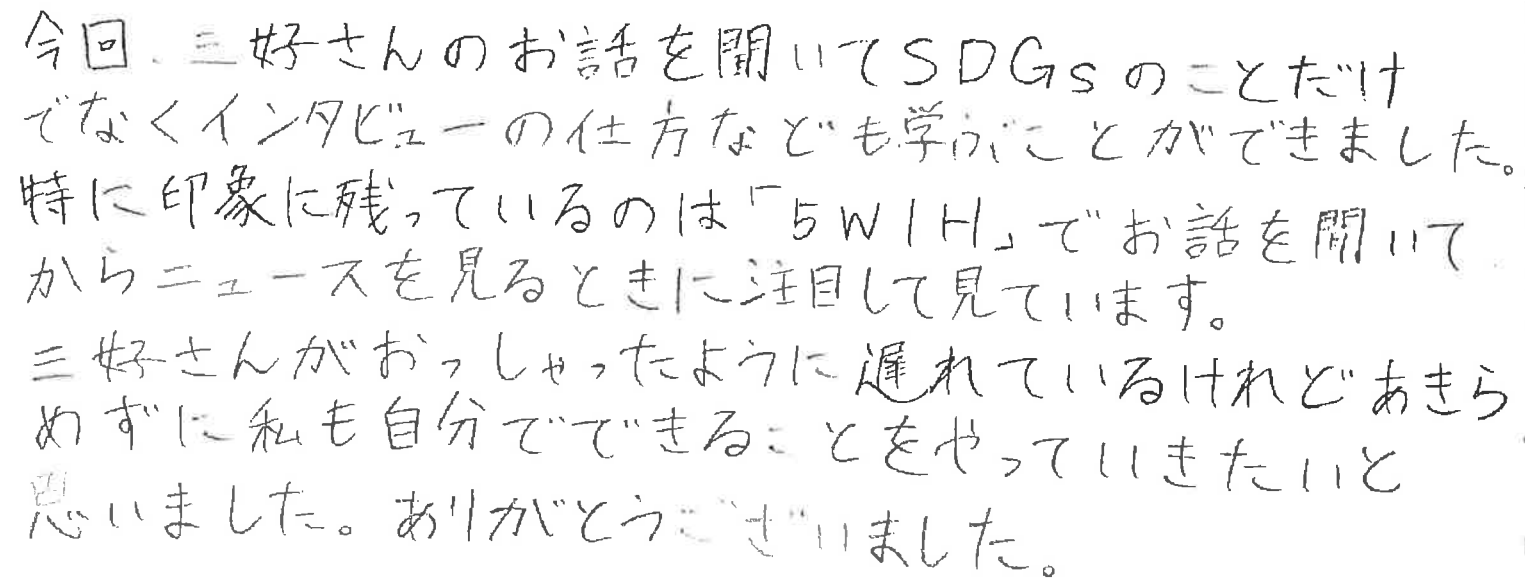 今回、三好さんのお話を聞いてSDGsのことだけ
でなくインタビューの仕方なども学ぶことができました。
特に印象に残っているのは「5W1H」でお話を聞いて
からニュースを見るときに注目して見ています。
三好さんがおっしゃったように遅れているけれどあきら
めずに私も自分でできることをやっていきたいと
思いました。ありがとうございました。